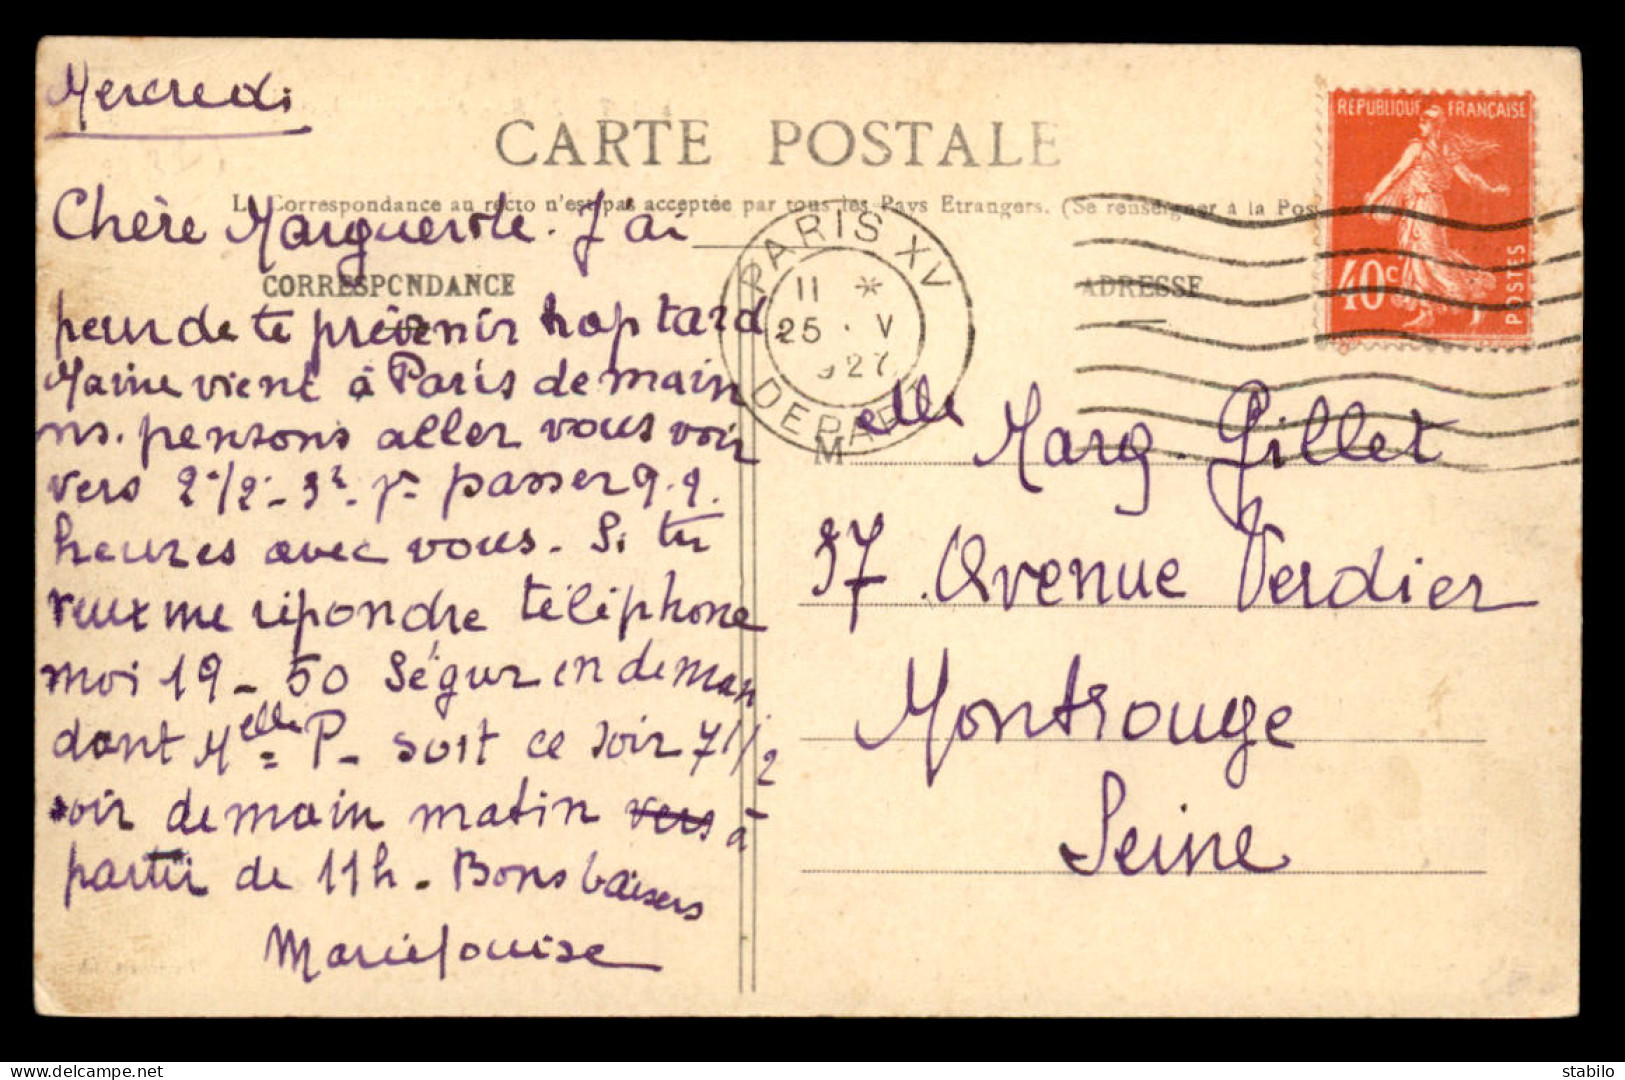 Mercredi
CARTE POSTALE
La Correspondance au recto n'est pas acceptée par tous les Pays Etrangers. (Se renseigner à la Pos
Chère Marguerite. J'ai
CORRESPONDANCE
peur de te prévenir trop tard
Marine vient à Paris demain
ns. pensons aller vous voir
vers 2 1/2 - 3h. pr passer q.q.
heures avec vous. Si tu
veux me répondre téléphone
moi 19 - 50 Ségur en deman
dant Melle P - soit ce soir 7 1/2
soir demain matin vers à
partir de 11h - Bons baisers
Marielouise
PARIS XV
11 *
25 . V
927
DEPART
REPUBLIQUE FRANÇAISE
40c
POSTES
ADRESSE
Melle Marg. Gillet
37 Avenue Verdier
Montrouge
Seine
delcampe.net
stabilo